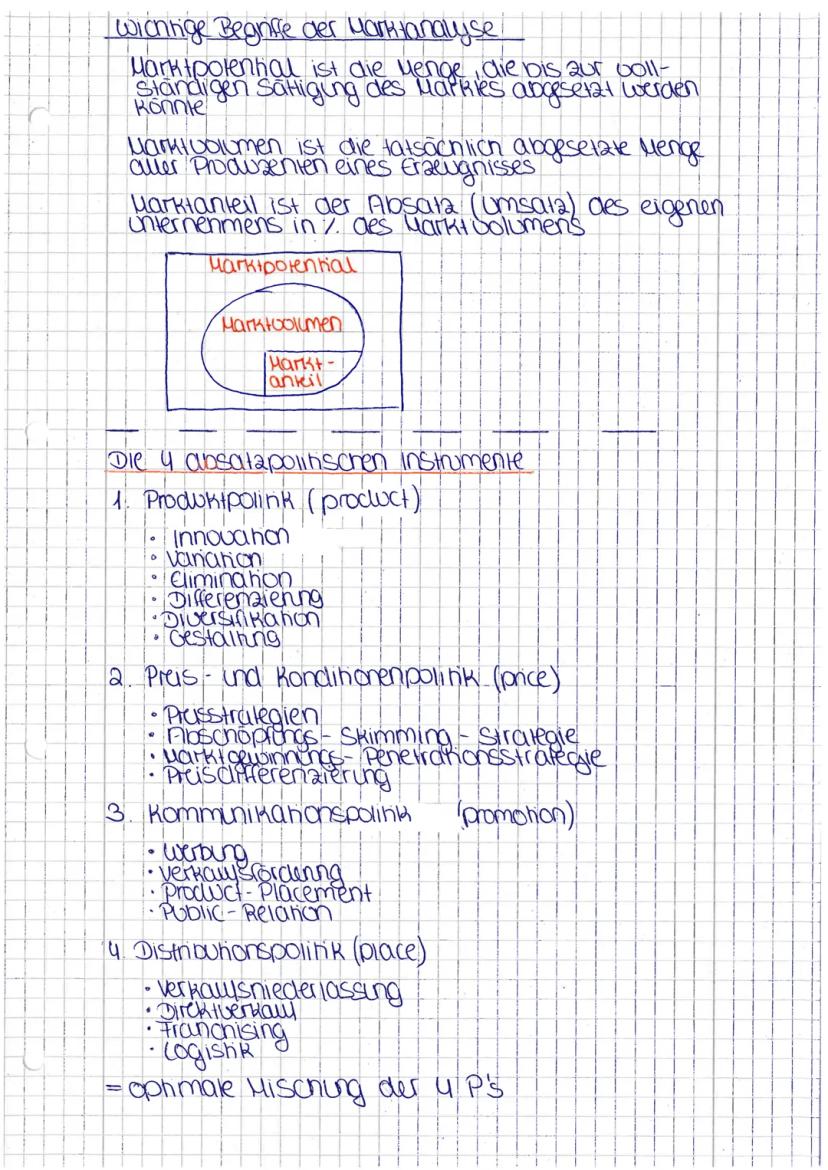 Wichtige Begriffe der Marktanalyse
Marktpotential ist die Menge, die bis zur voll-
ständigen Sättigung des Marktes abgesetzt werden
könnte
Marktvolumen ist die tatsächlich abgesetzte Menge
aller Produzenten eines Erzeugnisses
Marktanteil ist der Absatz (Umsatz) des eigenen
Unternehmens in % des Marktvolumens
Marktpotential
Marktvolumen
Markt-
anteil
Die 4 absatzpolitischen Instrumente
1. Produktpolitik (product)
• Innovation
• Variation
• Elimination
• Differenzierung
• Diversifikation
• Gestaltung
2. Preis- und Konditionenpolitik (price)
• Preisstrategien
• Abschöpfungs - Skimming - Strategie
• Marktgewinnungs- Penetrationsstrategie
• Preisdifferenzierung
3. Kommunikationspolitik (promotion)
• Werbung
• Verkaufsförderung
• Product - Placement
• Public - Relation
4. Distributionspolitik (place)
• Verkaufsniederlassung
• Direktverkauf
• Franchising
• Logistik
= optimale Mischung der 4 P's